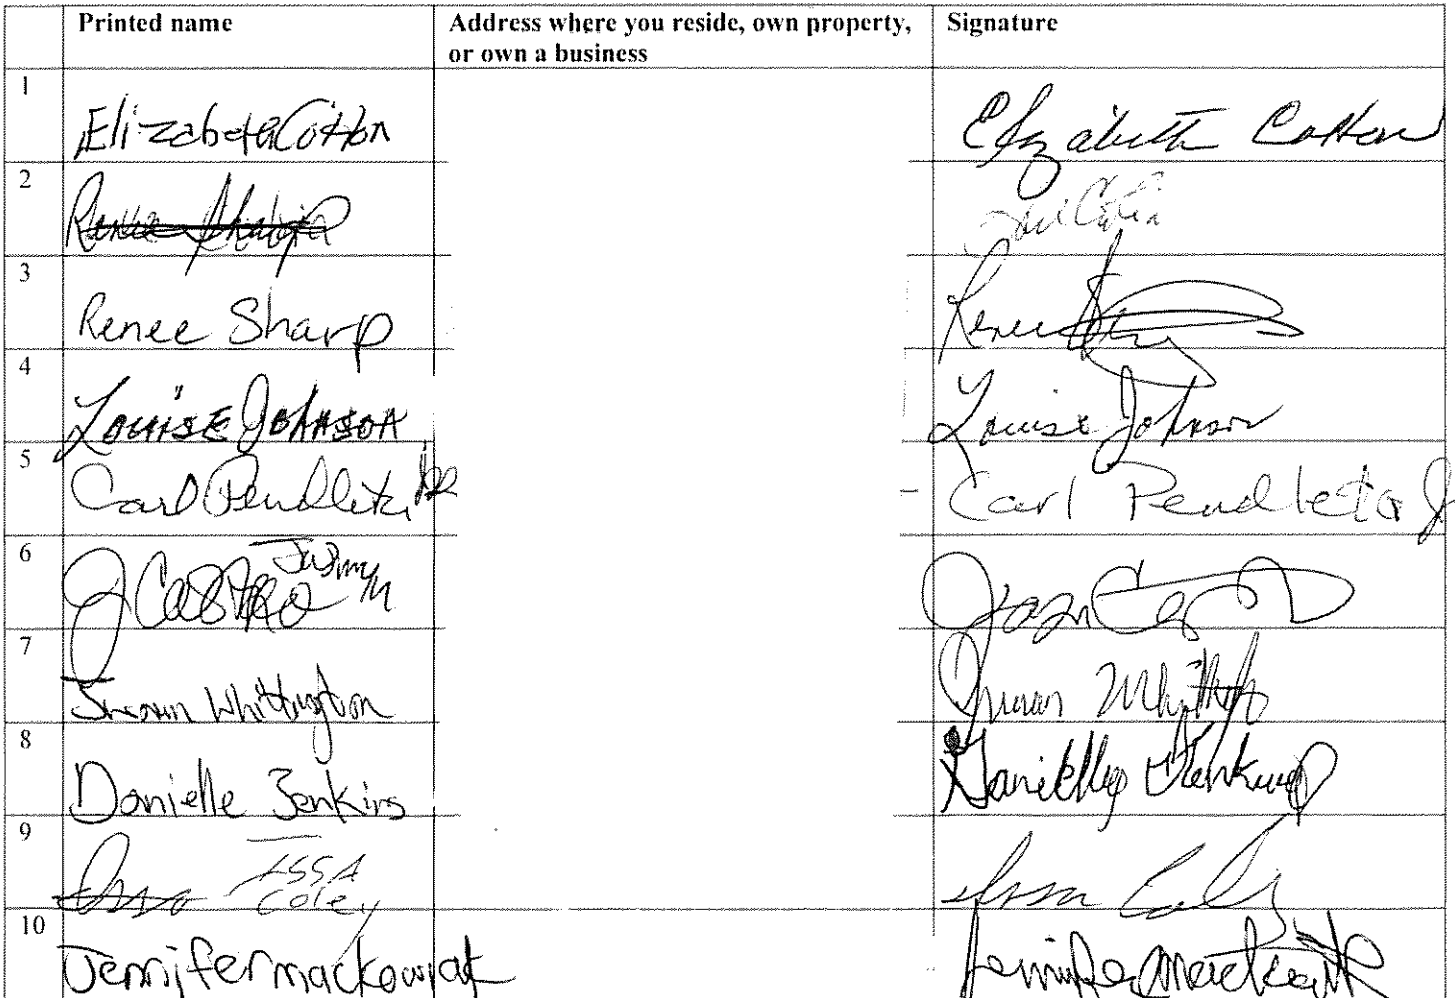 Printed name Address where you reside, own property, or own a business Signature
1 Elizabeth Cotton Elizabeth Cotton
2
3 Renee Sharp Renee
4 Louise Johnson Louise Johnson
5 Carl Pendleton Jr Carl Pendleton J
6 J Castro Jasmyn
7 Whittington
8 Danielle Jenkins Danielle Jenkins
9 ISSA Coley Issa Coley
10 Jennifer mackowiak Jennifer